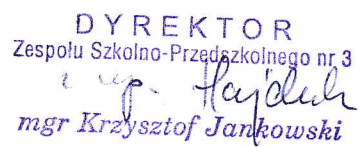 DYREKTOR
Zespołu Szkolno-Przedszkolnego nr 3
mgr Krzysztof Jankowski